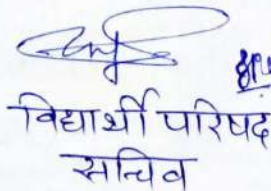 विद्यार्थी परिषद
सचिव